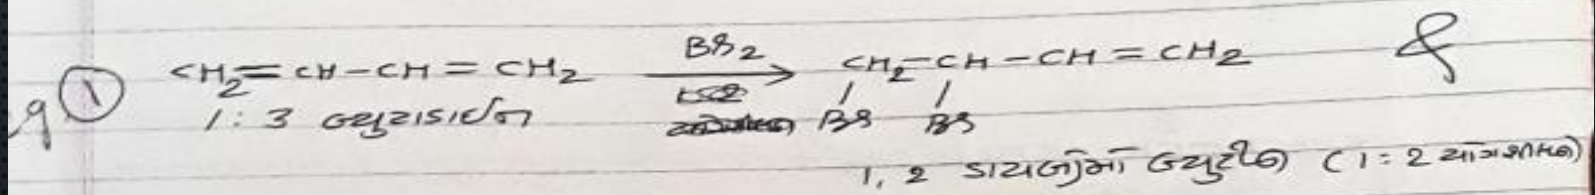 ૧ ① CH₂=CH-CH=CH₂ Br₂ → CH₂-CH-CH=CH₂ &
1:3 બ્યુટાડાઈન Br Br
1, 2 ડાયબ્રોમો બ્યુટીન (1:2 યોગશીલ)